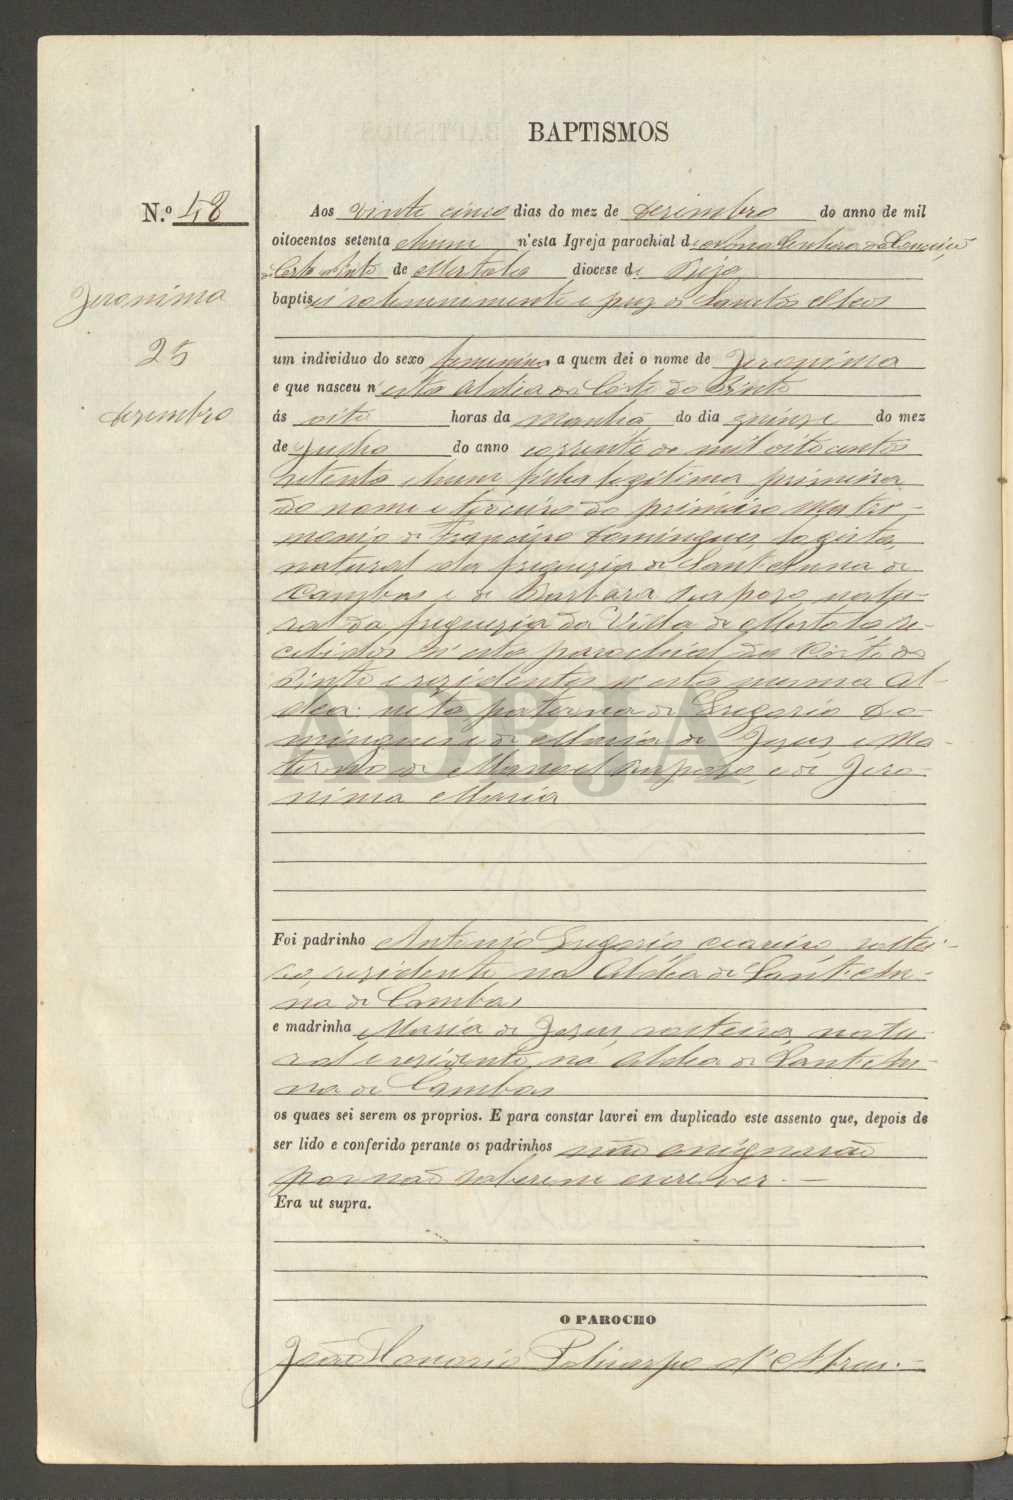 BAPTISMOS
N.º 48
Jeronima
25
dezembro
Aos vinte cinco dias do mez de dezembro do anno de mil
oitocentos setenta e hum n'esta Igreja parochial de Nossa Senhora da Conceição
da Corte do Pinto de Mertola diocese de Beja
baptisei solemnemente e puz os Sanctos Oleos
um individuo do sexo femenino a quem dei o nome de Jeronima
e que nasceu n'esta aldea da Corte do Pinto
ás oito horas da manhã do dia quinze do mez
de Junho do anno corrente de mil oito centos
setenta e hum filha legitima primeira
do nome e terceiro do primeiro matri-
monio de Francisco Domingues, logista,
natural da freguezia de Sant'Anna de
Cambas e de Barbara Rapozo natu-
ral da freguezia da Villa de Mertola re-
cebidos n'esta parochial da Corte do
Pinto e rezidentes n'esta mesma al-
dea: neta paterna de Gregorio Do-
mingues e de Maria de Jezus e ma-
terna de Manoel Rapozo, e de Jero-
nima Maria
ADBJA
Foi padrinho Antonio Gregorio ceareiro, soltei-
ro, rezidente na Aldêa de Sant'An-
na de Cambas
e madrinha Maria de Jezus, solteira, natu-
ral e rezidente na Aldea de Sant'An-
na de Cambas
os quaes sei serem os proprios. E para constar lavrei em duplicado este assento que, depois de
ser lido e conferido perante os padrinhos não assignarão
por não saberem escrever. —
Era ut supra.
O PAROCHO
João Honorio Policarpo d'Abreu. —